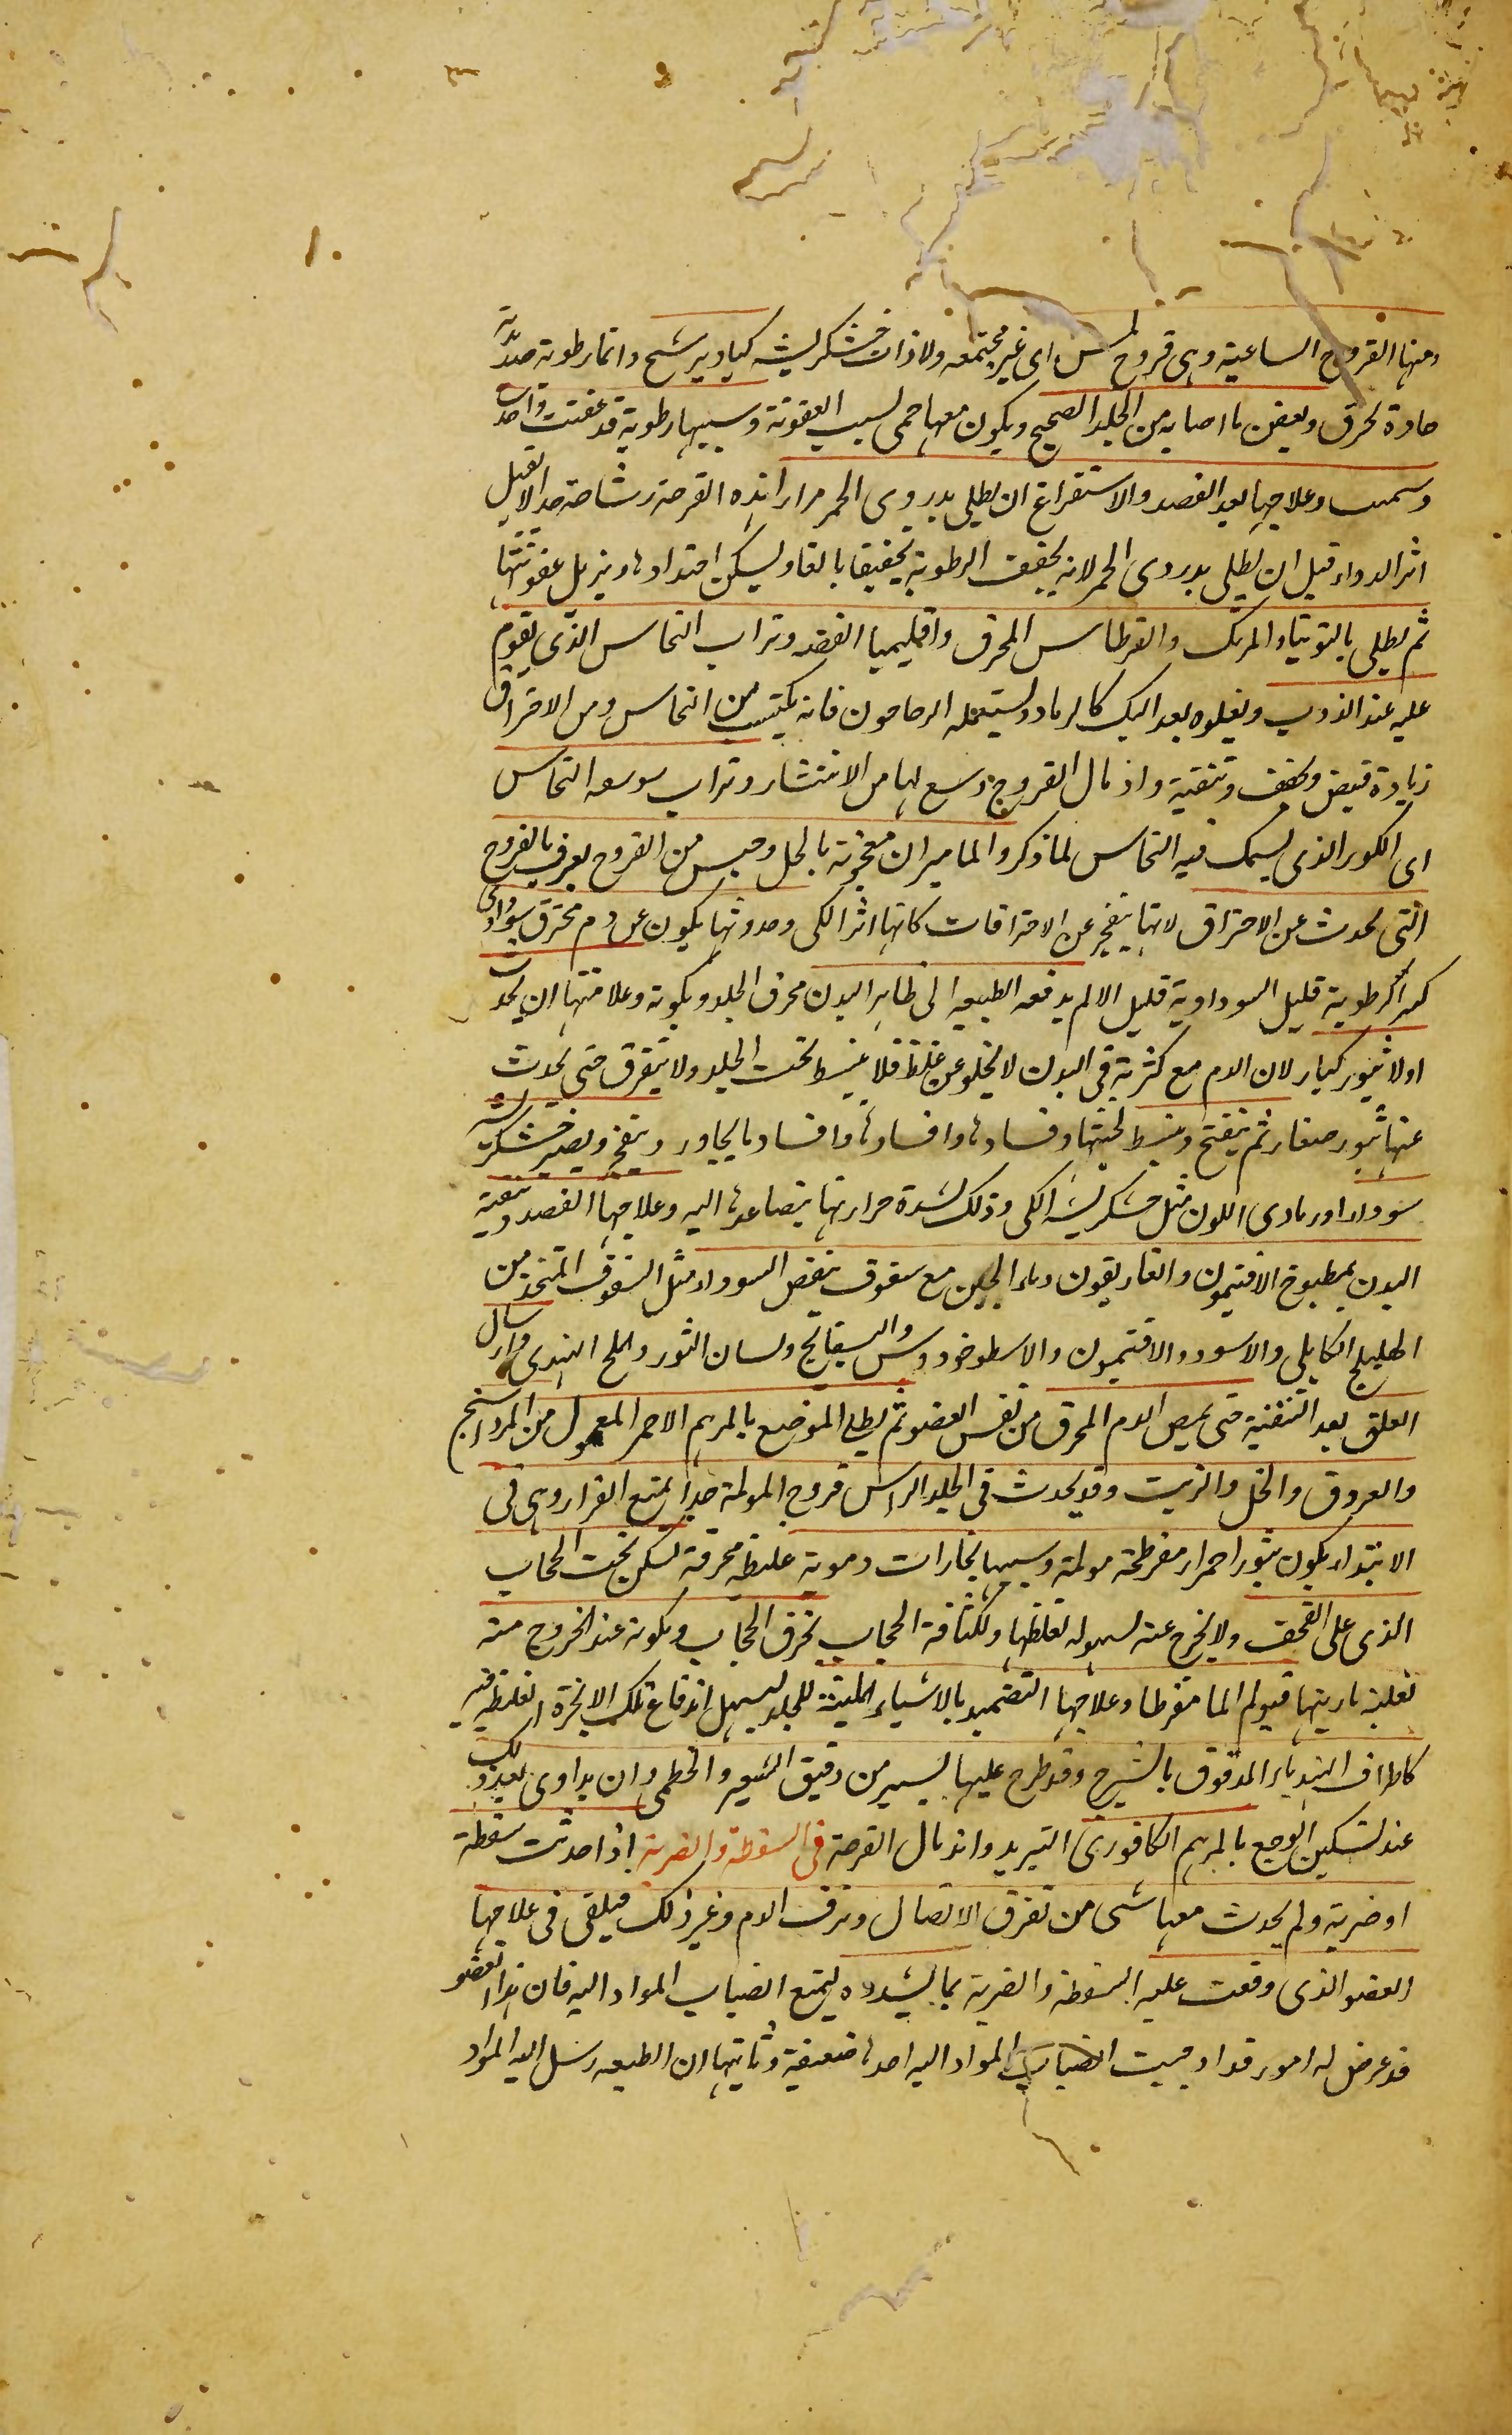 ومنها القروح الساعية وهی قروح لیس ای غیر مجتمعه ولا ذات خشکریشه کیاویرشح دائما رطوبة صدیدیة
حادة تحرق وتعفن ما اصابه من الجلد الصحیح ویکون معها حمی لسبب العفونة وسببها رطوبة قد عفنت واحتدت
وسمیت وعلاجها بعد الفصد والاستفراغ ان یطلی بدردی الخمر مرارا هذه القرحة رشاحة جدا لا تقبل
اثر الدواء قبل ان یطلی بدردی الخمر لانه یجفف الرطوبة تجفیفا بالغا ویسکن احتدادها ویزیل عفونتها
ثم یطلی بالتوتیا والمرتک والقرطاس المحرق واقلیمیا الفضه وتراب النحاس الذی یقوم
علیه عند الذوب ویعلوه بعد السبک کالرماد ویستعمله الزجاجون فانه یکتسب من النحاس ومن الاحتراق
زیادة قبض وتجفف وتنقیة واندمال القروح ومنع لها من الانتشار وتراب بوسعه النحاس
ای الکور الذی یسبک فیه النحاس لما ذکر والمامیران معجونة بالخل وجنس من القروح یعرف بالقروح
التی تحدث عن الاحتراق لانها ینفجر عن الاحتراقات کانها اثر الکی وحدوثها یکون عن دم محترق سوداوی
کثیر الرطوبة قلیل السوداویة قلیل الالم یدفعه الطبیعه الی ظاهر البدن محرق الجلد ویکویه وعلامتها ان یحدث
اولا بثور کبار لان الدم مع کثرته فی البدن لا یخلو عن غلظ فلا ینبسط تحت الجلد ولا یتفرق حتی یحدث
عنها بثور صغار ثم ینفتح وینبسط لخبثها وفسادها وافسادها وافساد ما یجاور وینفجر ویصیر خشکریشه
سوداء او رمادی اللون مثل خشکریشه الکی وذلک لشدة حرارتها یتصاعدها الیه وعلاجها الفصد وتنقیة
البدن بمطبوخ الافتیمون والغاریقون وماء الجبن مع سفوف ینقص السوداء مثل السفوف المتخذ من
الهلیلج الکابلی والاسود والافتیمون والاسطوخودوس والبسفایج ولسان الثور والملح الهندی وارسال
العلق بعد التنقیة حتی یمص الدم المحرق من نفس العضو ثم یطلی الموضع بالمرهم الاحمر المعمول من المرداسنج
والعروق والخل والزیت وقد یحدث فی الجلد الراس قروح المولمة جدا یمنع القرار وهی فی
الابتداء یکون بثورا حمرا مفرطحة مولمة وسببها بخارات دمویة غلیظه محرقة تسکن تحت الحجاب
الذی علی القحف ولا یخرج عنه لسهوله لغلظها ولکثافة الحجاب یخرق الحجاب ویکویه عند الخروج منه
لغلبة ناریتها فیولم الما مفرطا وعلاجها التضمید بالاشیاء الملینة للجلد لیسهل اندفاع تلک الابخرة الغلیظة فیه
کاطراف الهندباء المدقوق بالشیرج وقد طرح علیها یسیر من دقیق الشعیر والخطمی وان یداوی بعد ذلک
عند تسکین الوجع بالمرهم الکافوری التبرید واندمال القرحة فی السقطة والضربة اذا حدثت سقطة
او ضربة ولم یحدث معها شی من تفرق الاتصال ونزف الدم وغیر ذلک فیلقی فی علاجها
العضو الذی وقعت علیه السقطة والضربة بما یشدده لیمنع انصباب المواد الیه فان هذا العضو
قد عرض له امور قد اوجبت انصباب المواد الیه احدها ضعفه وثانیها ان الطبیعه رسل الیه المواد